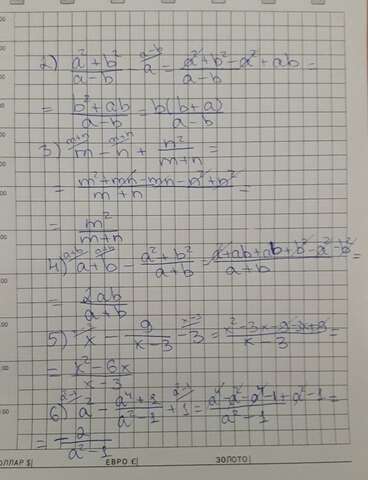 2) (a² + b²)/(a-b) - a^(a-b) = (a² + b² - a² + ab)/(a-b) =
= (b² + ab)/(a-b) = b(b+a)/(a-b)
3) m^(m+n) - n^(m+n) + n²/(m+n) =
= (m² + mn - mn - n² + n²)/(m+n) =
= m²/(m+n)
4) a^(a+b) + b^(a+b) - (a² + b²)/(a+b) = (a² + ab + ab + b² - a² - b²)/(a+b) =
= 2ab/(a+b)
5) x^(x-3) - 9/(x-3) - 3^(x-3) = (x² - 3x - 9 - 3x + 9)/(x-3) =
= (x² - 6x)/(x-3)
6) a² - (a⁴ + 1)/(a² - 1) + 1 = (a⁴ - a² - a⁴ - 1 + a² - 1)/(a² - 1) =
= -2/(a² - 1)
ОЛЛАР $| ЕВРО €| ЗОЛОТО|